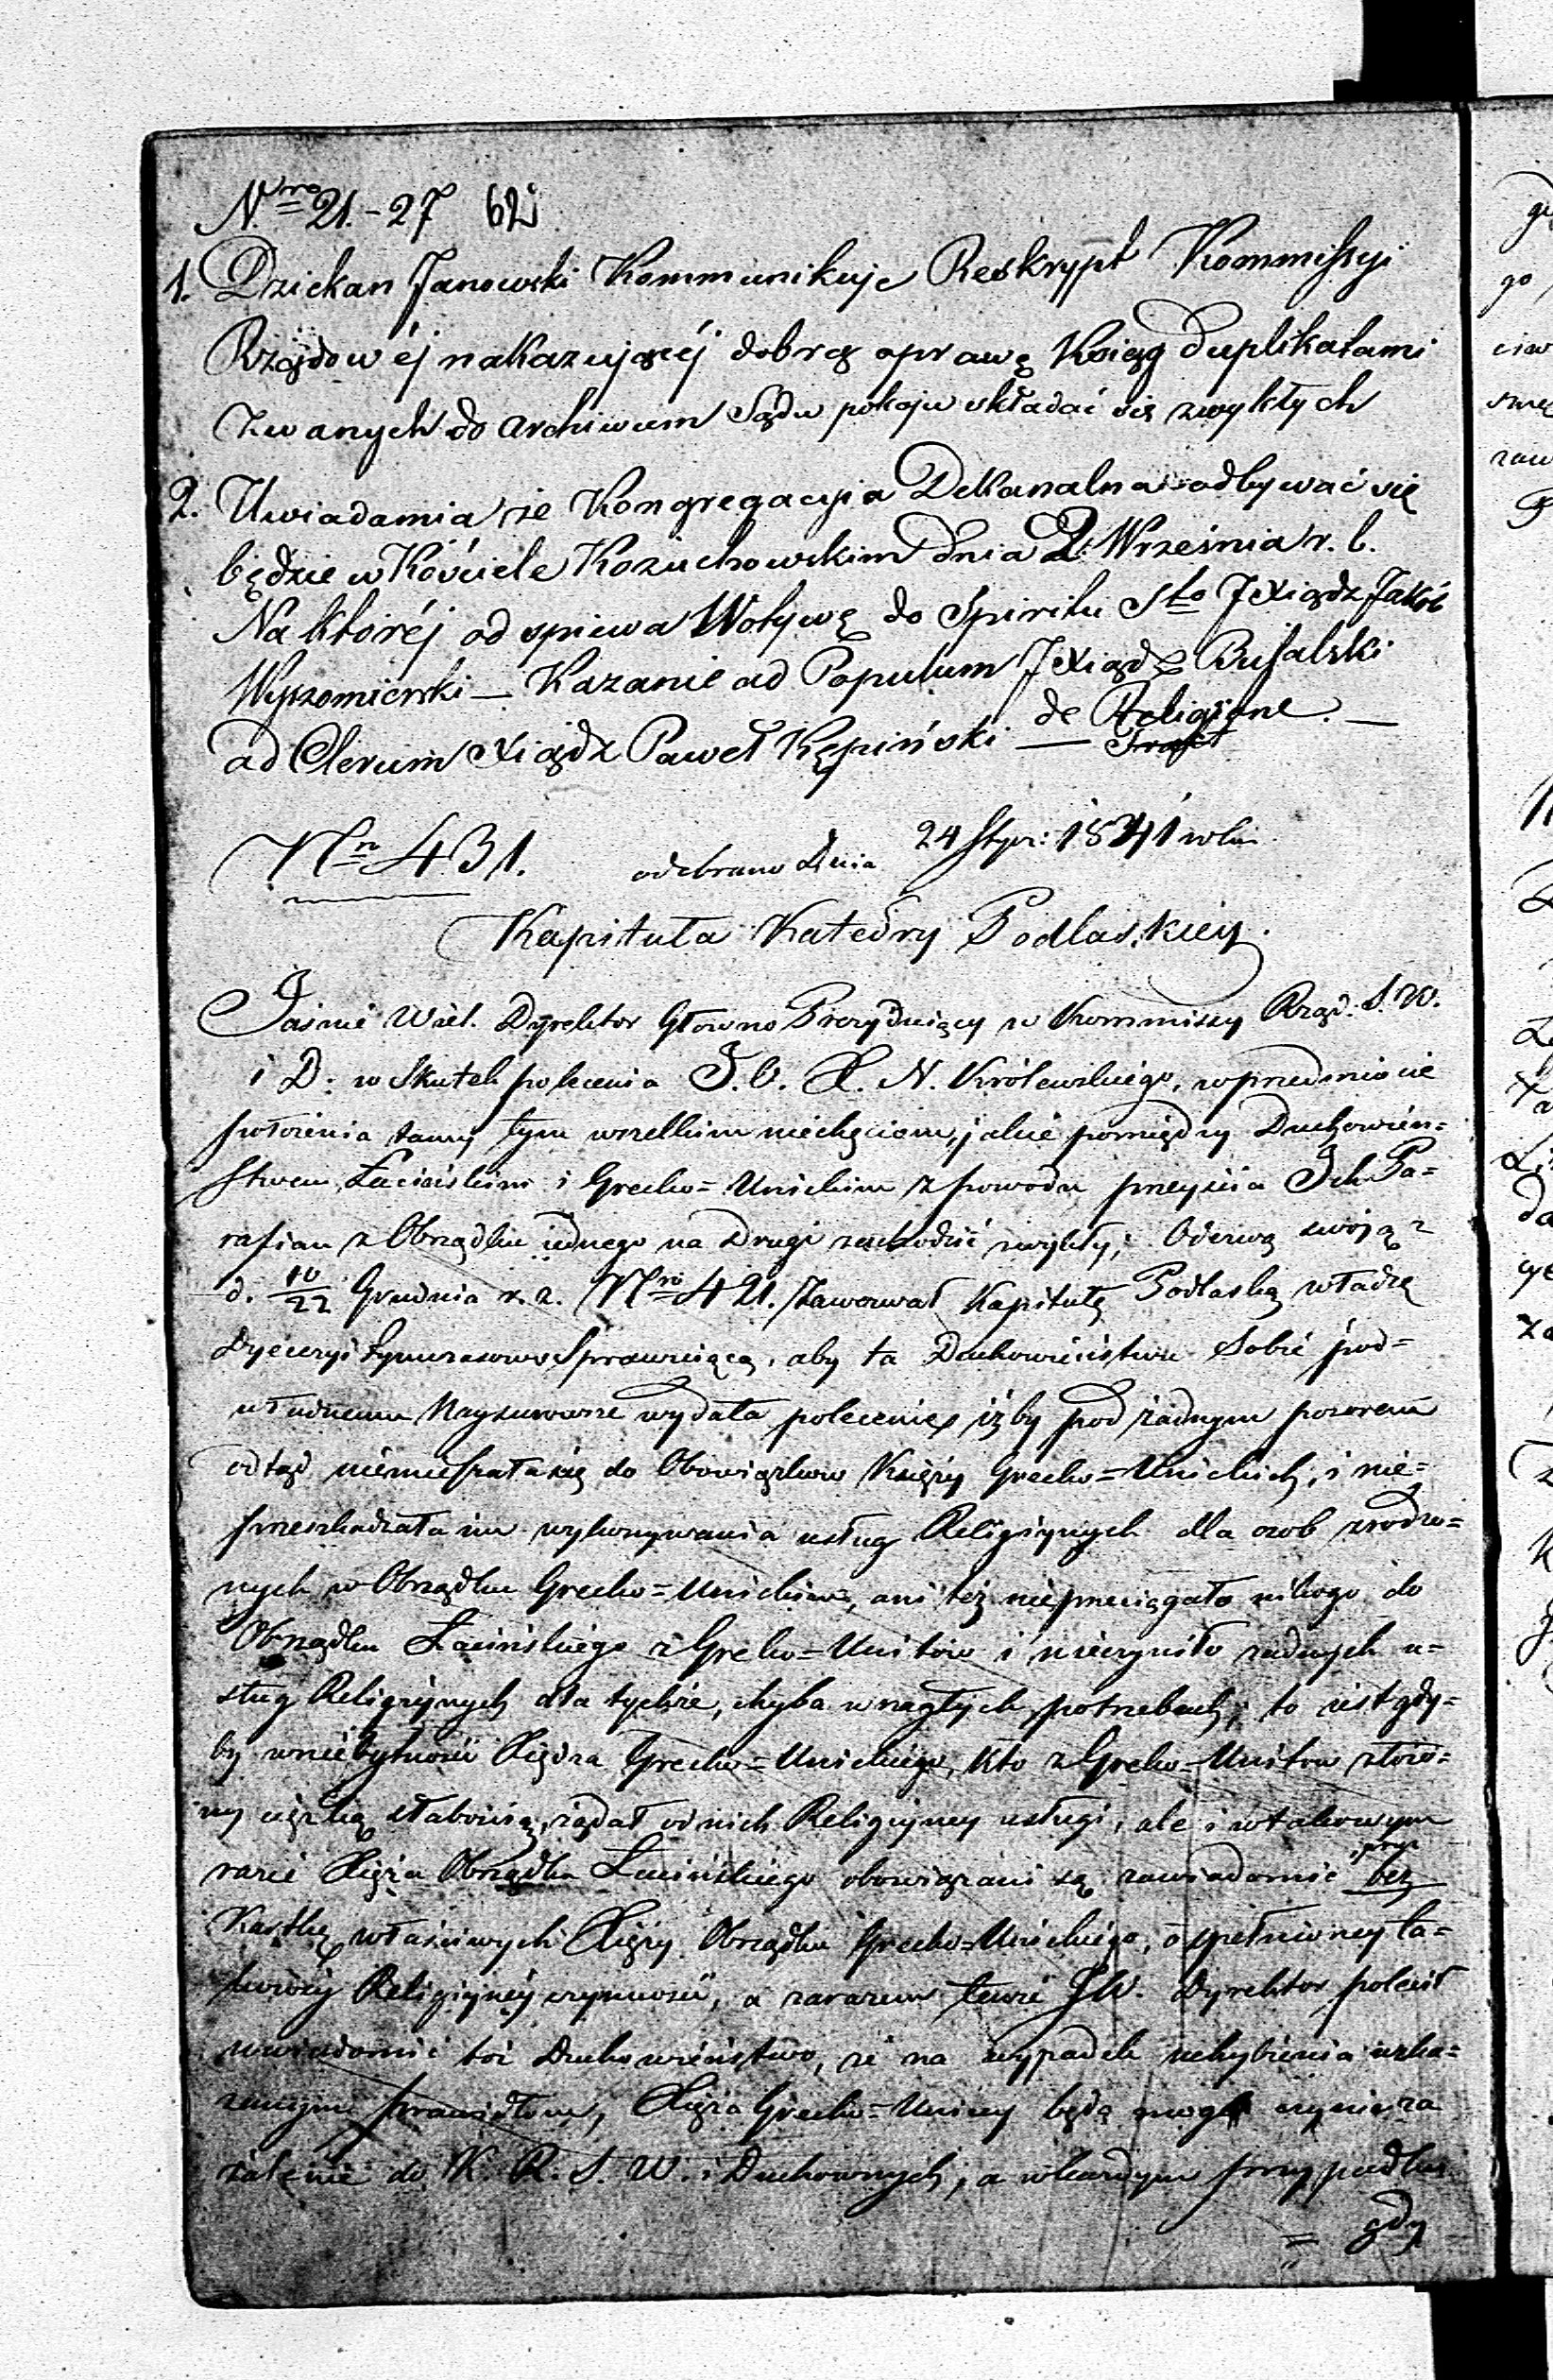 Nro 21.-27 62
1. Dziekan Janowski Kommunikuje Reskrypt Kommissyi
Rządowéj nakazującéj dobrą oprawę Ksiąg Duplikatami
zwanych do archiwum Sądu pokoju składać się zwykłych
2. Uwiadamia że Kongregacyia Dekanalna odbywać się
będzie w Kościele Kożuchowskim dnia 2. Września r. b.
Na któréj odspiewa Wotywę do Spiritu Sto JXiądz Jakób
Wyszomierski — Kazanie ad Populum JXiądz Rufalski
ad Clerum Xiądz Paweł Kępiński — de Religione. —
Nr 431. odebrano Dnia 24 Stycz: 1841 roku
Kapituła Katedry Podlaskiey.
Jaśnie Wiel. Dyrektor Głowno Prezyduiący w Kommissy Rząd. S. W.
i D. w Skutek polecenia J. O. X. N. Królewskiego, w przedmiocie
położenia tamy tym wszelkim niechęciom, jakie pomiędzy Duchowień=
stwem Łacińskim i Grecko=Unickim z powodu przejścia Ich Pa=
rafian z Obrządku jednego na Drugi zachodzić zwykły; Odezwą swoją z
d. 10/22 Grudnia r. z. Nro 421. zawezwał Kapitułę Podlaską władzę
Dyecezyi tymczasowo Sprawuiącą, aby ta Duchowieństwu Sobie pod=
władnemu Naysurowsze wydała polecenie, iżby pod żadnym pozorem
odtąd niemieszała się do Obowiązków Księży Grecko=Unickich, i nie=
przeszkadzała im wykonywania usług Religiynych dla osob zrodzo=
nych w Obrządku Grecko=Unickim, ani też nieprzeciągało nikogo do
Obrządku Łacińskiego z Greko=Unitów i nieczyniło żadnych u=
sług Religiynych dla tychże, chyba w nagłych potrzebach, to iest gdy=
by w niebytności Xiędza Grecko=Unickiego, kto z Greko=Unitow złożo=
ny ciężką słabością, żądał od nich Religiyney usługi, ale i w takowym
razie Xięża Obrządku Łacińskiego obowiązani są zawiadomić przez
Kartkę właściwych Xięży Obrządku Grecko=Unickiego, o spełnioney ta=
kowéy Religiynéy czynności, a zarazem tenże JW. Dyrektor polecił
uwiadomić toż Duchowieństwo, że na wypadek uchybienia wska=
zanym prawidłom, Xięża Grecko=Uniccy będą mogli czynić za=
żalenie do K. R. S. W. i Duchownych, a w każdym przypadku
= gdy